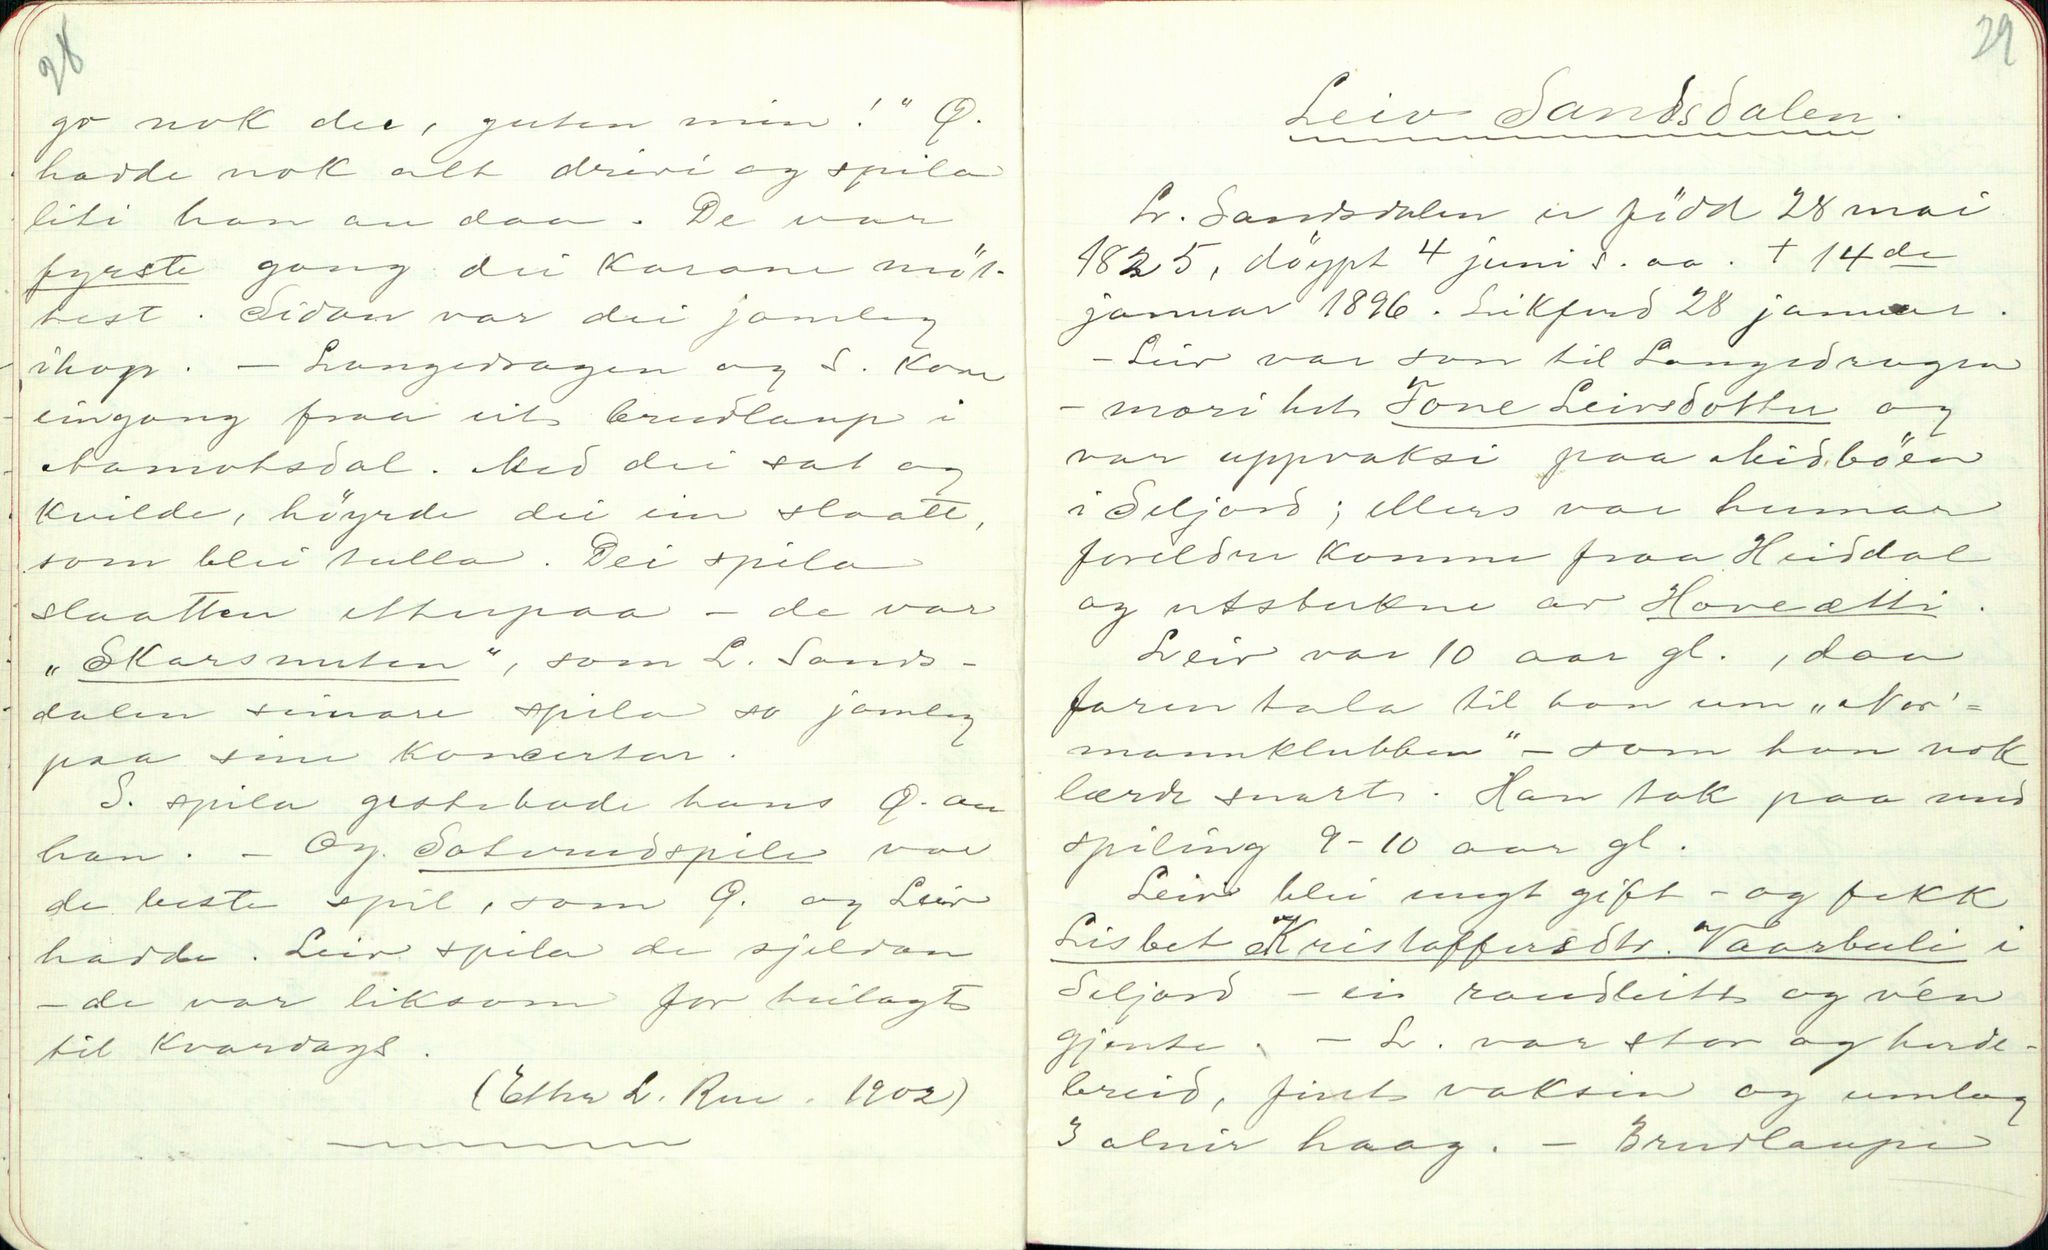 28
go nok dee, guten min!" Q.
hadde nok alt drivi og spila
liti han au daa. De var
fyrste gong dei karane møt-
test. Sidan var dei jamleg
ihop. - Langedragen og S. kom
eingong fraa eit brudlaup i
Aamotsdal. Med dei sat og
kvilde, høyrde dei ein slaatt,
som blei tulla. Dei spila
slaatten etterpaa - de var
"Skarsnuten", som L. Sands-
dalen seinare spila so jamleg
paa sine koncertar.
S. spila gestebode hans Q. au
han. - Og Sotveudspile var
de beste spil, som Q. og Leiv
hadde. Leiv spila de sjeldan
- de var liksom for heilagt
til kvardags.
(Etter L. Rue. 1902)
29
Leiv Sandsdalen.
Lv. Sandsdalen er född 28 mai
1825, döypt 4 juni s. aa. † 14de
januar 1896. Likferd 28 januar.
- Leiv var son til Langedragen
- mori het Tone Leivsdotter og
var uppvaksi paa Midböen
i Seljord; ellers var hennar
foreldre komne fraa Heiddal
og utsterkne av Hoveætti.
Leiv var 10 aar gl., daa
faren tala til han um "Nor'-
mannklubben" - som han nok
lærde snart. Han tok paa med
spiling 9-10 aar gl.
Leiv blei ungt gift - og fekk
Lisbet Kristoffersdtr. Vaarbeli i
Seljord - ei raudleitt og vén
gjente. - Lv. var stor og herde-
breid, fint vaksin og umlag
3 alnir haag. - Brudlaupe